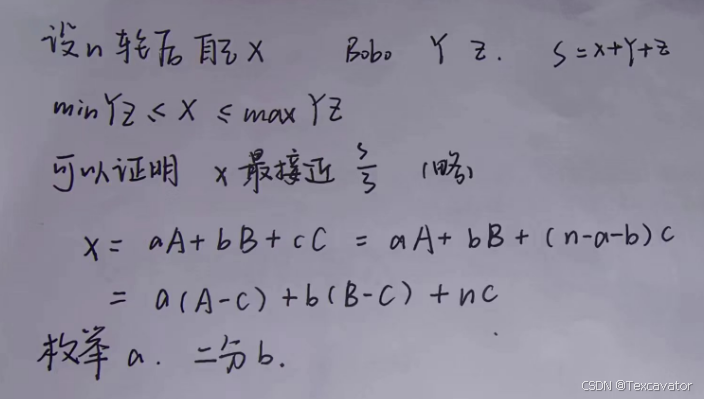 设n轮后 自己 X Bobo Y Z. S=X+Y+Z
min YZ ≤ X ≤ max YZ
可以证明 x 最接近 S/3 (略)
X = aA+bB+cC = aA+bB+(n-a-b)C
= a(A-C)+b(B-C)+nC
枚举 a. 二分 b.
CSDN @Texcavator